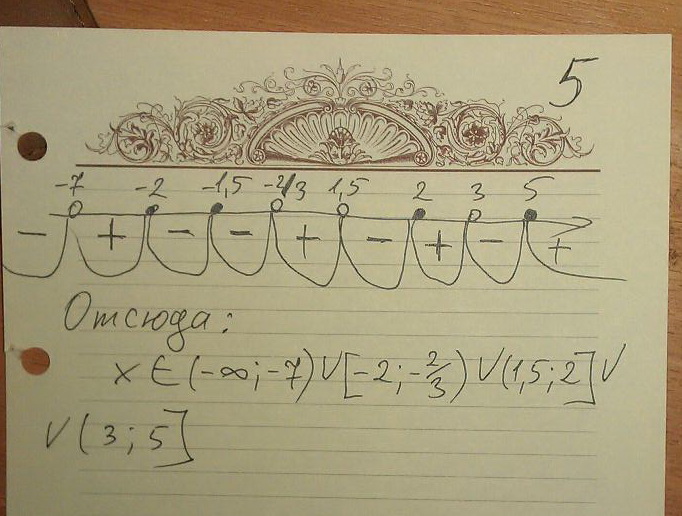 5
-7 -2 -1,5 -2/3 1,5 2 3 5
- + - - + - + - +
Отсюда:
x ∈ (-∞; -7) ∨ [-2; -2/3) ∨ (1,5; 2] ∨
∨ (3; 5]